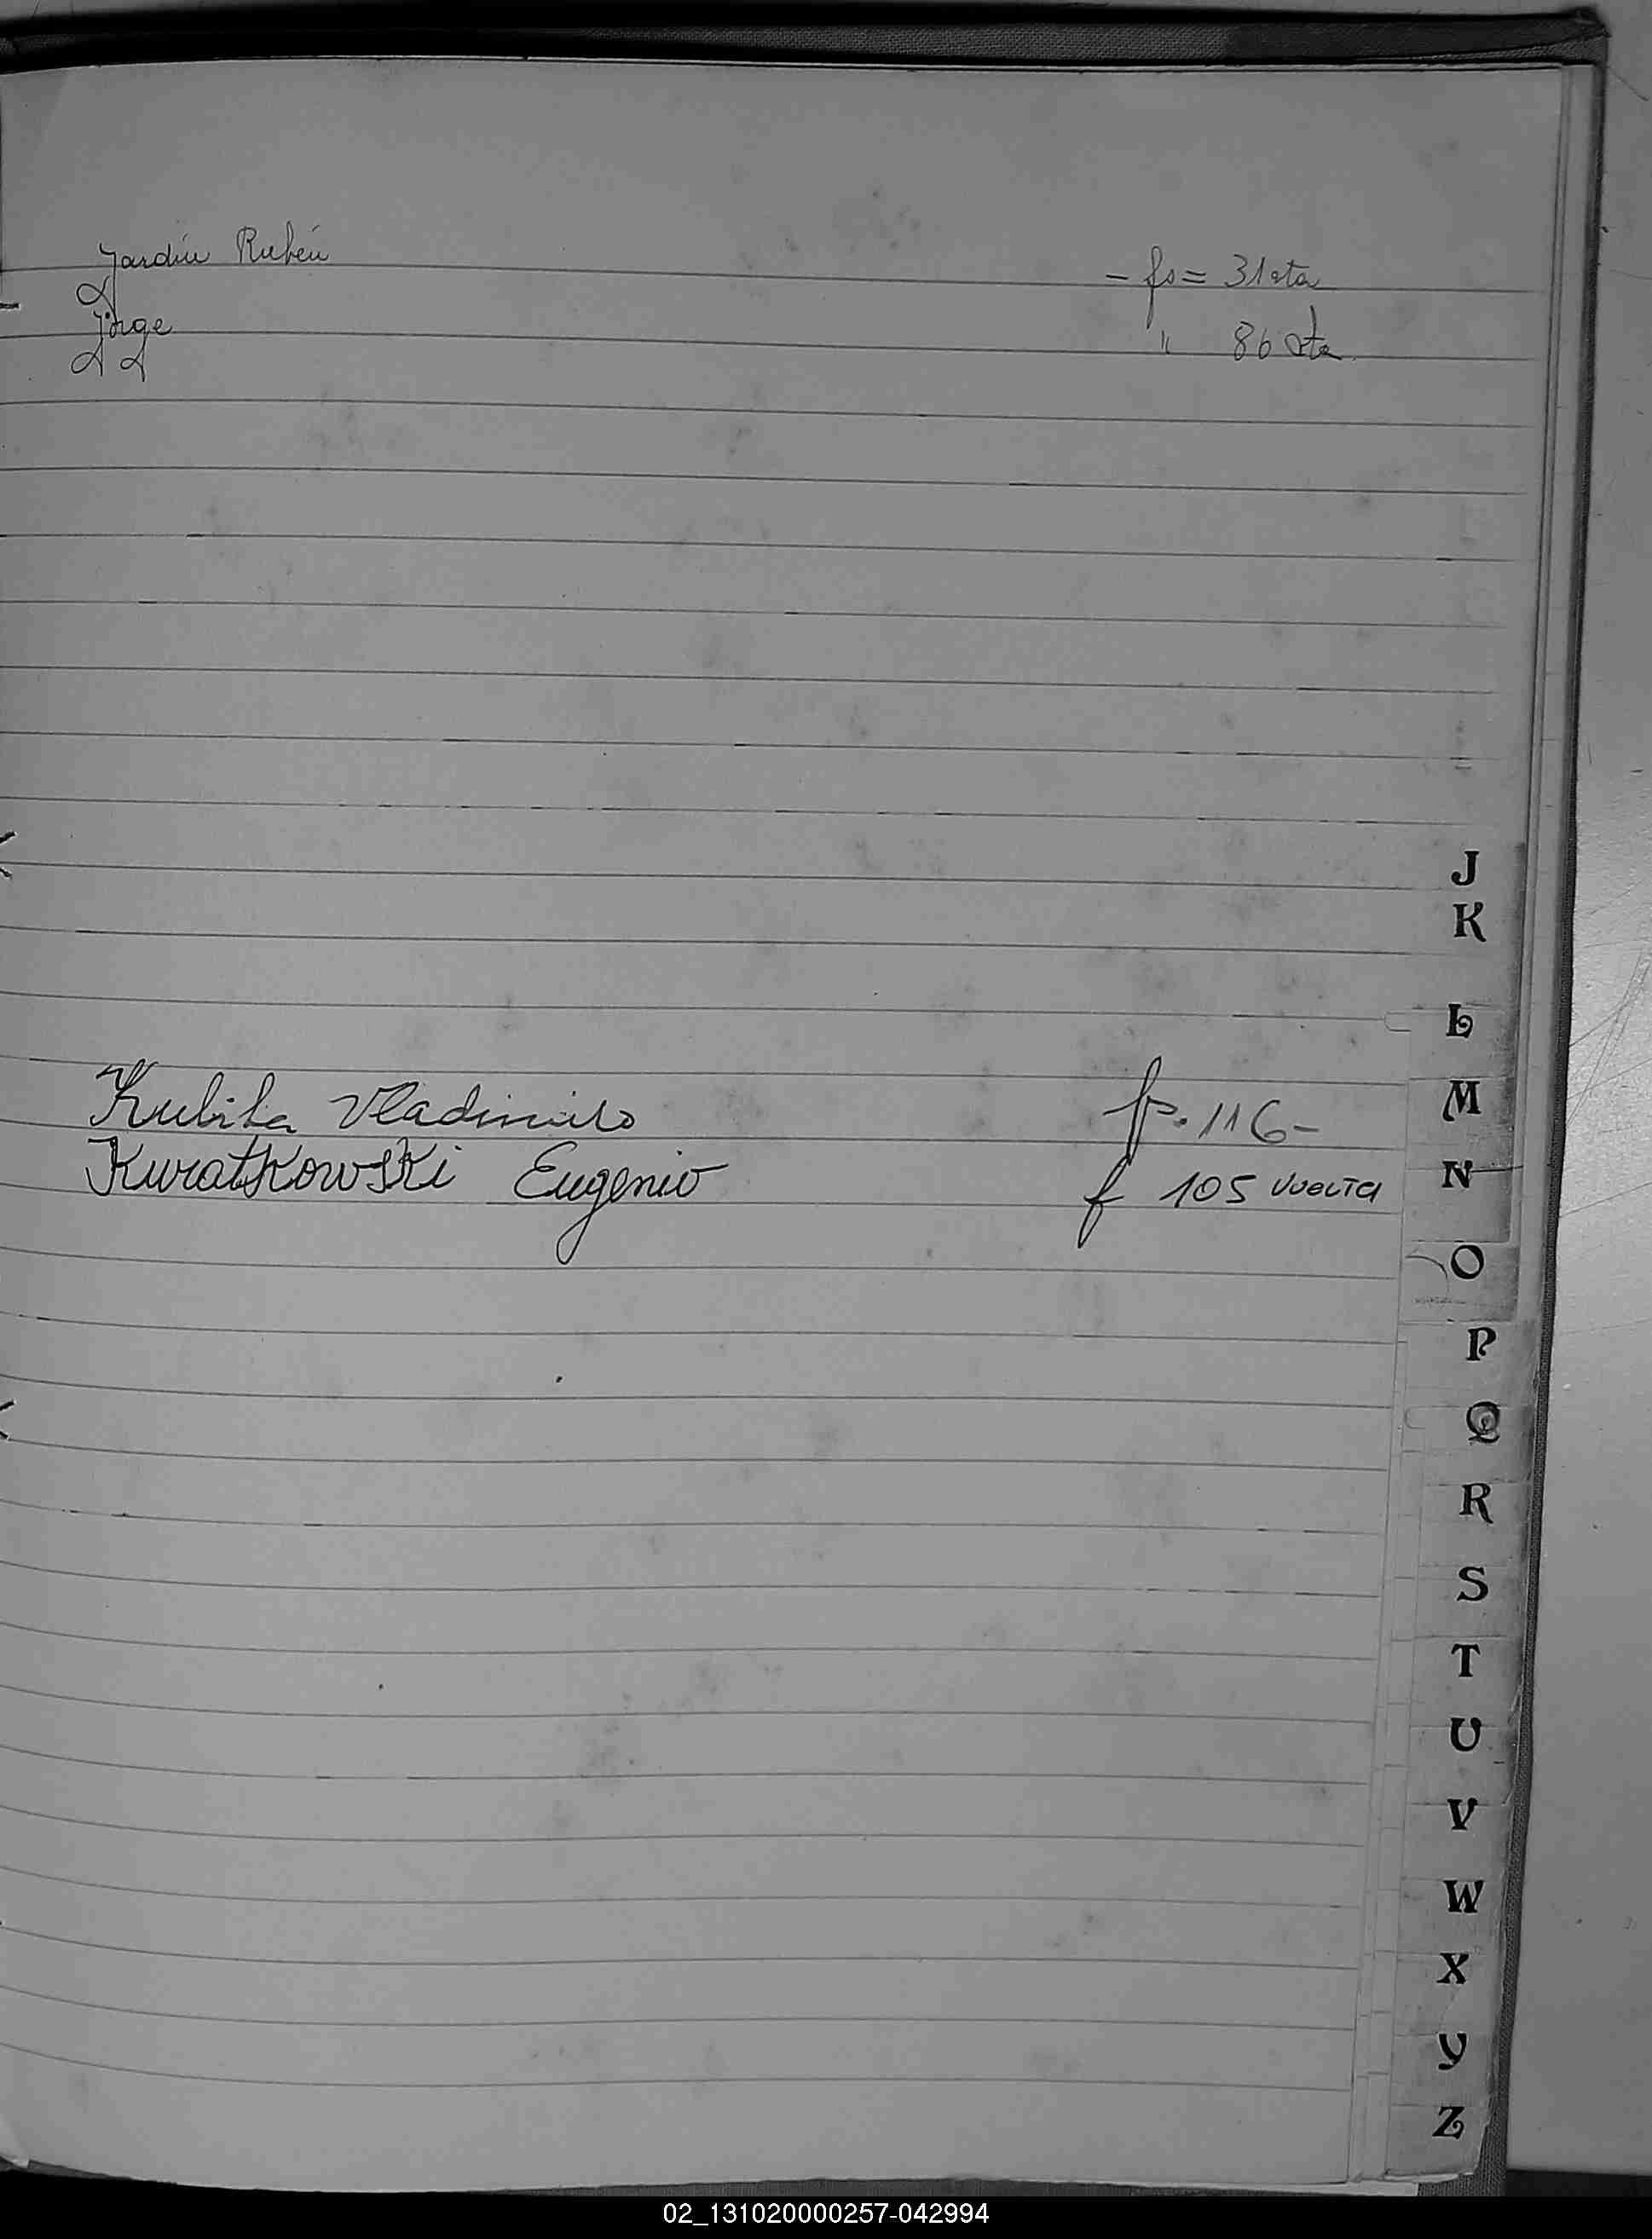 Jardín Rubén - fs = 31 vta
Jorge " 86 vta.
J
K
L
M
Kubika Vladimiro fs. 116-
N
Kuratkowski Eugenio f 105 vuelta
O
P
Q
R
S
T
U
V
W
X
Y
Z
02_131020000257-042994